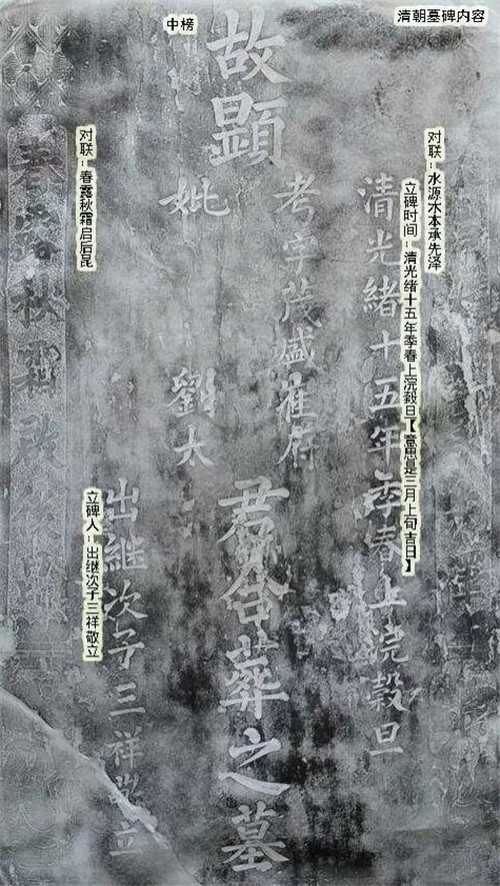 清朝墓碑内容
中榜
对联：水源木本承先泽
立碑时间：清光绪十五年季春上浣穀旦【意思是三月上旬吉日】
清光緒十五年季春上浣穀旦
故顯
考字茂盛崔府
妣 劉太
君合葬之墓
出继次子三祥敬立
立碑人：出继次子三祥敬立
对联：春露秋霜启后昆
春露秋霜啟